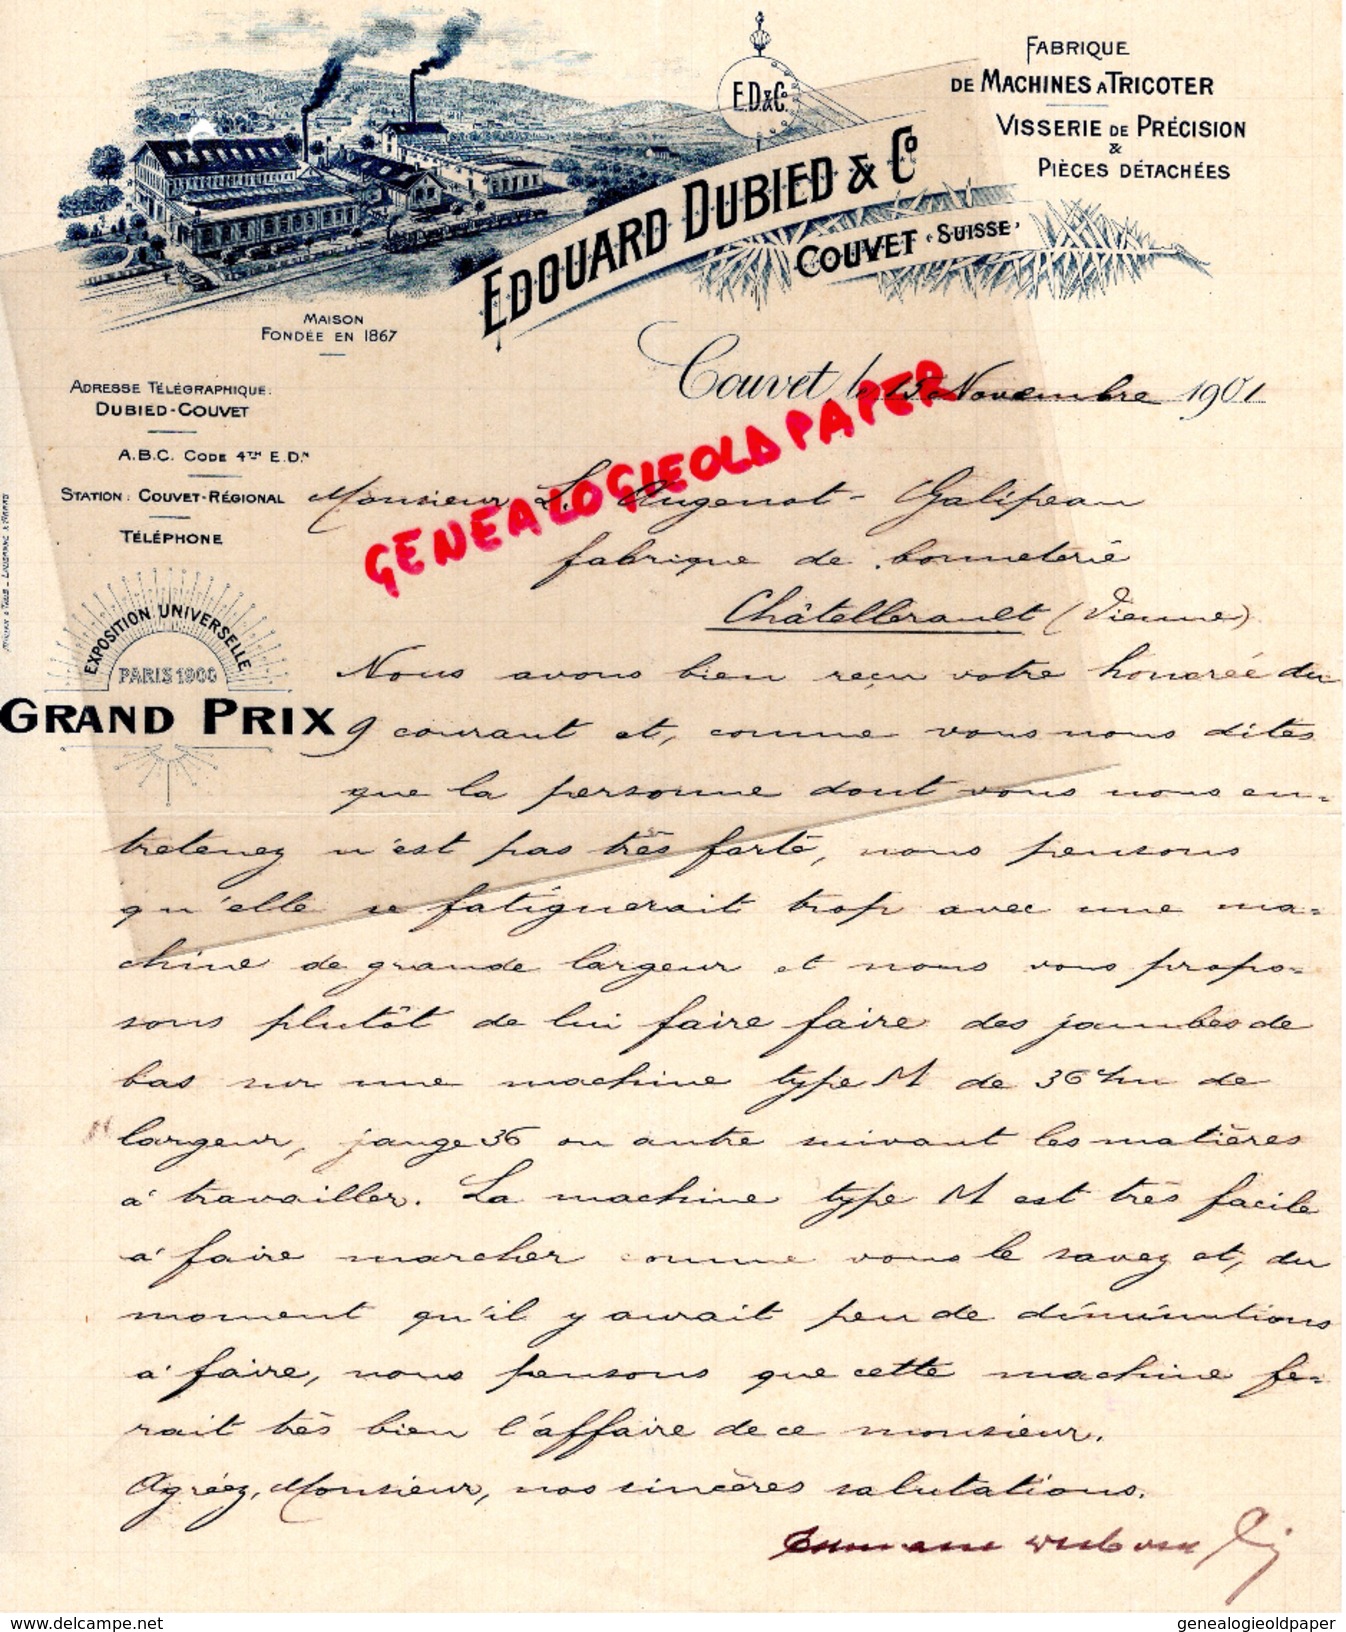 FABRIQUE
DE MACHINES A TRICOTER
VISSERIE DE PRÉCISION
&
PIÈCES DÉTACHÉES
E.D.&Co.
EDOUARD DUBIED & Co
COUVET (SUISSE)
MAISON
FONDÉE EN 1867
ADRESSE TÉLÉGRAPHIQUE:
DUBIED-COUVET
A.B.C. CODE 4TH E.DN
STATION: COUVET-RÉGIONAL
TÉLÉPHONE
EXPOSITION UNIVERSELLE
PARIS 1900
GRAND PRIX
GENEALOGIEOLDPAPER
Couvet, le 15 Novembre 1901
Monsieur L. Augenot-Galipeau
fabrique de bonneterie
Châtellerault (Vienne)
Nous avons bien reçu votre honorée du
9 courant et, comme vous nous dites
que la personne dont vous nous en=
tretenez n'est pas très forte, nous pensons
qu'elle se fatiguerait trop avec une ma=
chine de grande largeur et nous vous propo=
sons plutôt de lui faire faire des jambes de
bas sur une machine type M de 36 c/m de
largeur, jauge 36 ou autre suivant les matières
à travailler. La machine type M est très facile
à faire marcher comme vous le savez et, du
moment qu'il y aurait peu de diminutions
à faire, nous pensons que cette machine fe=
rait très bien l'affaire de ce monsieur.
Agréez, Monsieur, nos sincères salutations.
delcampe.net
genealogieoldpaper